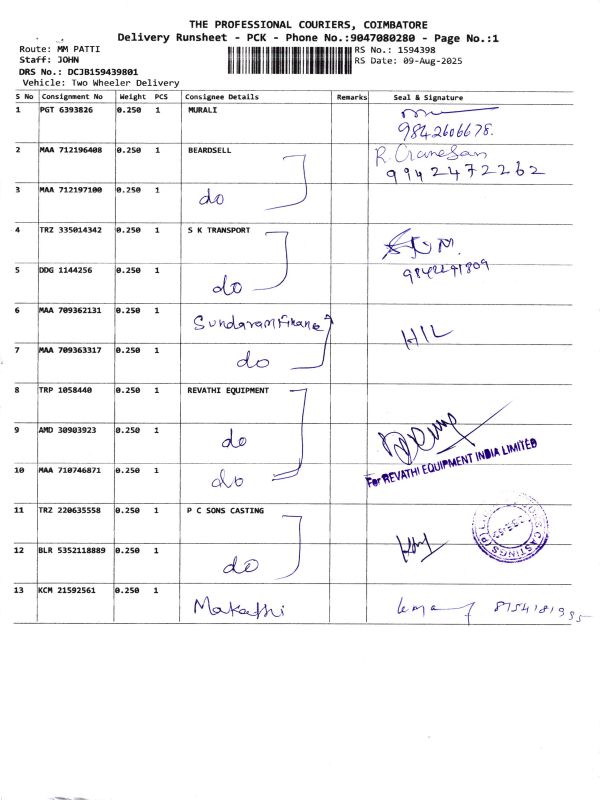 THE PROFESSIONAL COURIERS, COIMBATORE
Delivery Runsheet - PCK - Phone No.:9047080280 - Page No.:1
Route: MM PATTI
RS No.: 1594398
Staff: JOHN
RS Date: 09-Aug-2025
DRS No.: DCJB159439801
Vehicle: Two Wheeler Delivery
S No Consignment No Weight PCS Consignee Details Remarks Seal & Signature
1 PGT 6393826 0.250 1 MURALI
9842606678.
2 MAA 712196408 0.250 1 BEARDSELL
9942472262
3 MAA 712197100 0.250 1 do
4 TRZ 335014342 0.250 1 S K TRANSPORT
5 DDG 1144256 0.250 1 do
6 MAA 709362131 0.250 1 Sundaram Finane
HIL
7 MAA 709363317 0.250 1 do
8 TRP 1058440 0.250 1 REVATHI EQUIPMENT
9 AMD 30903923 0.250 1 do
For REVATHI EQUIPMENT INDIA LIMITED
10 MAA 710746871 0.250 1 do
11 TRZ 220635558 0.250 1 P C SONS CASTING
CASTINGS (P)
12 BLR 5352118889 0.250 1 do
13 KCM 21592561 0.250 1 Makathi